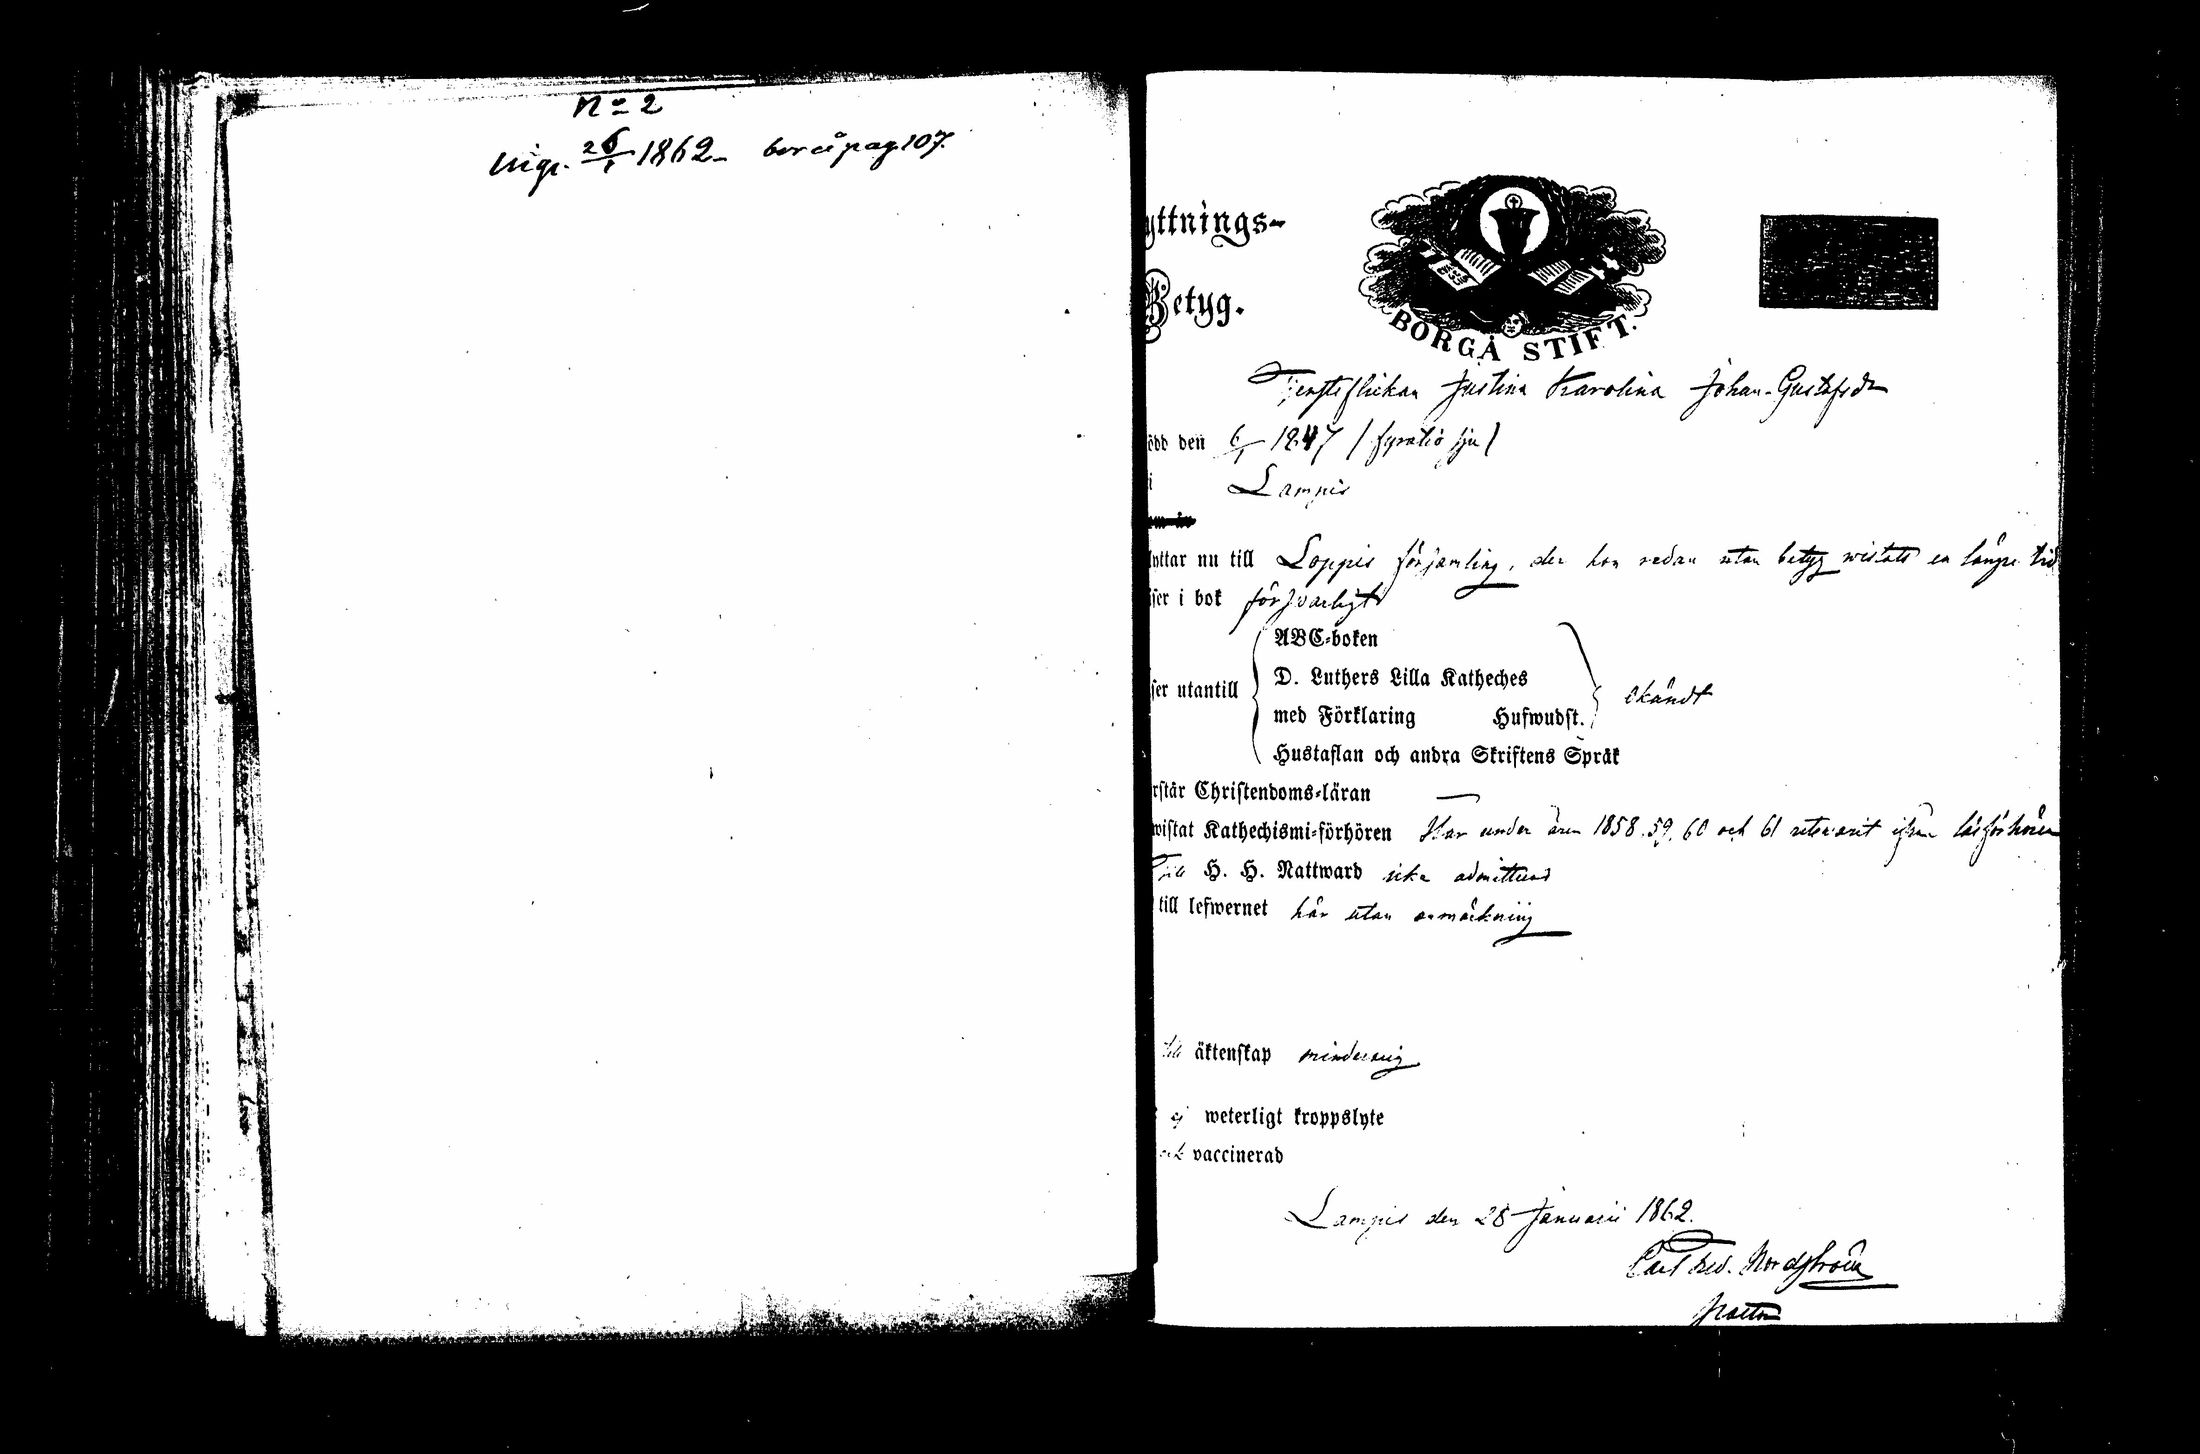 No 2
inigr. 26/1 1862 – bor å pag 107.
yttnings-
Betyg.
BORGÅ STIFT.
Tjensteflickan Justina Karolina Johan-Gustafsdr
ödd den 6/1 1847 / fyratio sju /
i Lampis
lyttar nu till Loppis församling, der hon redan utan betyg wistats en längre tid
äser i bok försvarligt
ABC-boken
D. Luthers Lilla Katheches
ser utantill
med Förklaring Hufwudst.
okändt
Hustaflan och andra Skriftens Språk
rstår Christendoms-läran —
wistat Kathechismi-förhören Har under åren 1858. 59. 60 och 61 utewarit ifrån läsförhören
Till H. H. Nattward icke admitterad
till lefwernet här utan anmärkning
till äktenskap minderårig
ej weterligt kroppslyte
och vaccinerad
Lampis den 28 Januarii 1862.
Carl Fred. Nordström
Pastor